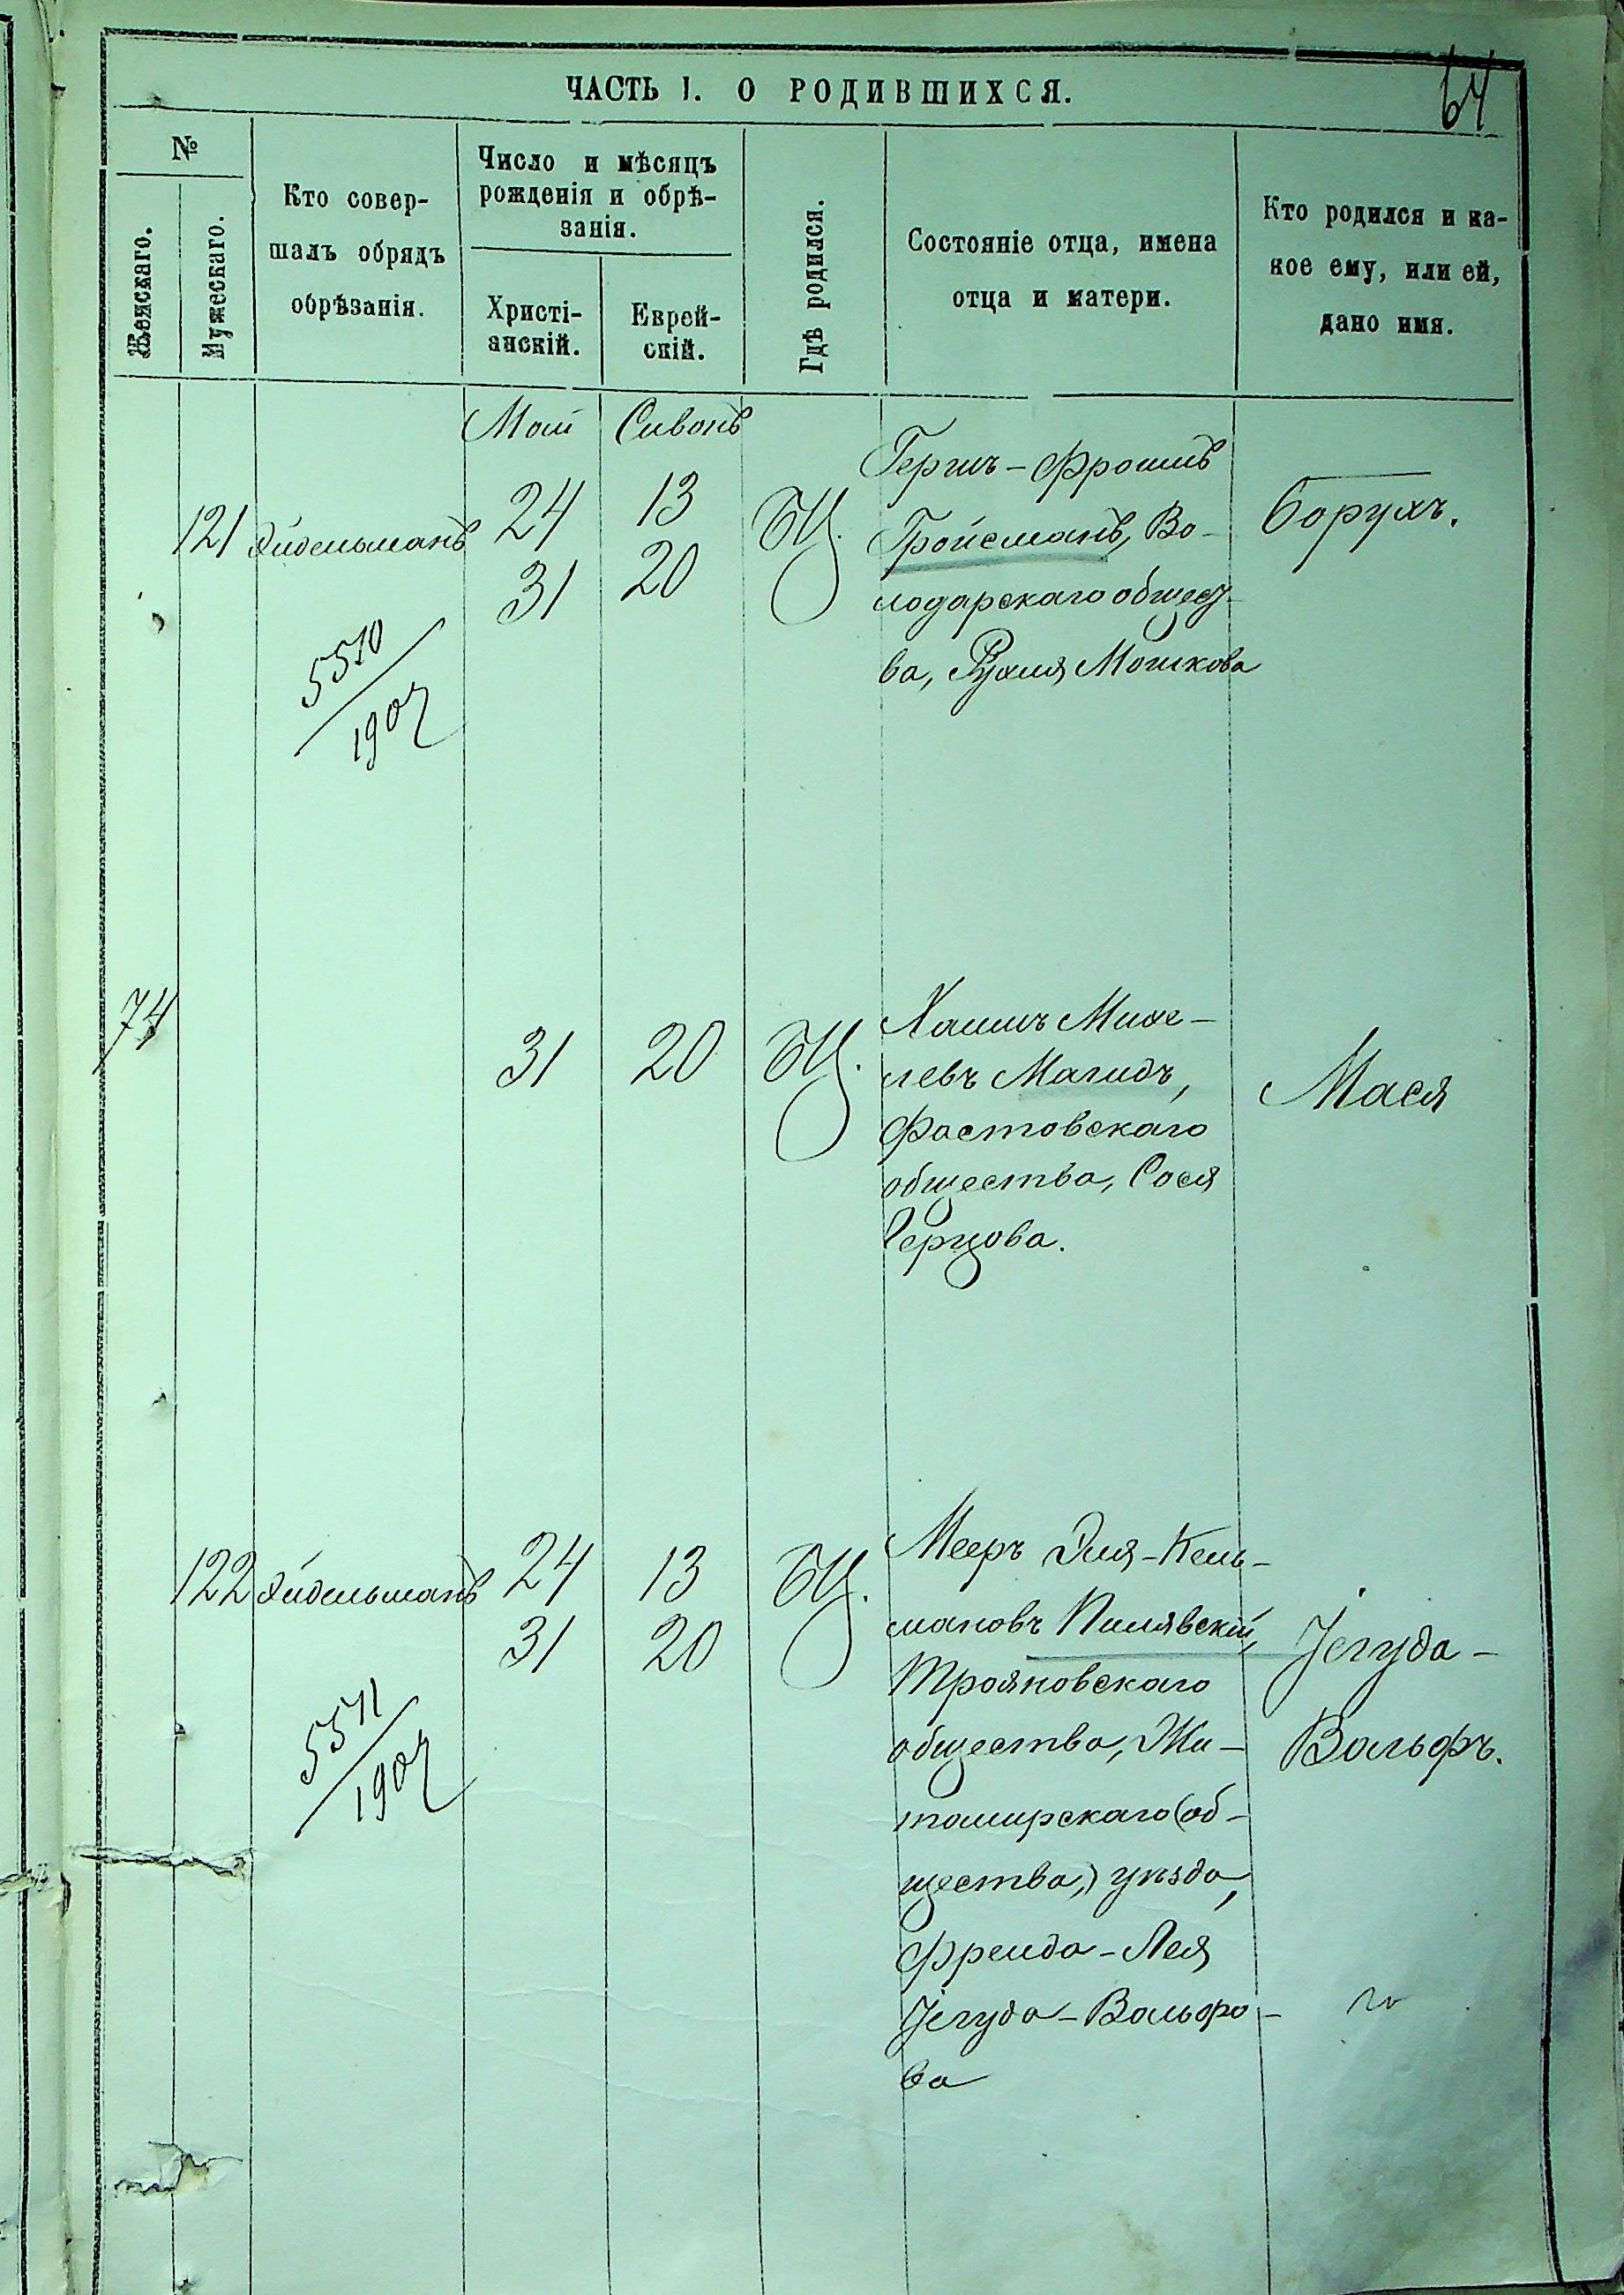 64
ЧАСТЬ I. О РОДИВШИХСЯ.
№
Женскаго.
Мужескаго.
Кто совер-
шалъ обрядъ
обрѣзанія.
Число и мѣсяцъ
рожденія и обрѣ-
занія.
Христі-
анскій.
Еврей-
скій.
Гдѣ родился.
Состояніе отца, имена
отца и матери.
Кто родился и ка-
кое ему, или ей,
дано имя.
Май Сиванъ
121 Эйдельманъ 24 13 БЦ.
31 20
5510
1907
Гершъ-Фроимъ
Гройсманъ, Во-
лодарскаго общест-
ва, Рухля Мошкова
Борухъ.
74
31 20 БЦ.
Хаимъ Михе-
левъ Магидъ,
Фастовскаго
общества, Сося
Герцова.
Мася
122 Эйдельманъ 24 13 БЦ.
31 20
5511
1907
Мееръ Эля-Кель-
мановъ Пилявскій,
Трояновскаго
общества, Жи-
томирскаго (об-
щества,) уѣзда,
Фрейда-Лея
Іегуда-Вольфо-
ва
Іегуда-
Вольфъ.